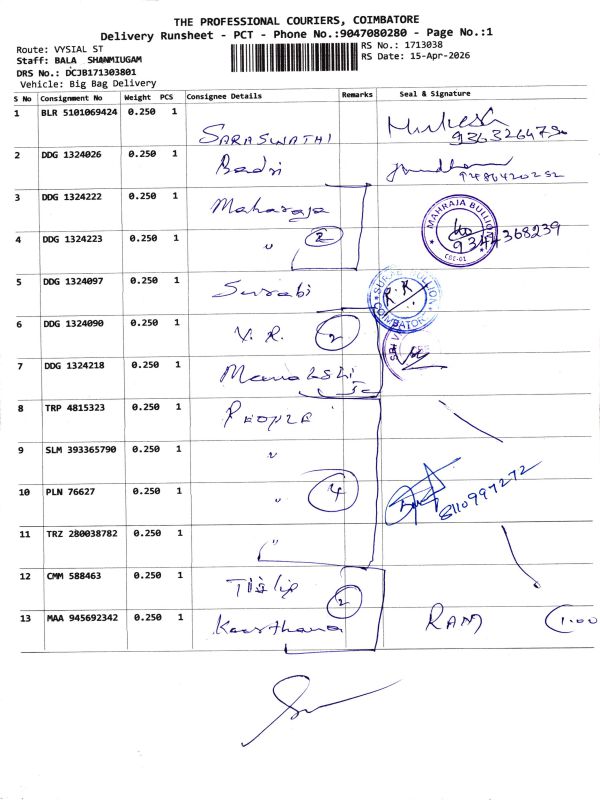 THE PROFESSIONAL COURIERS, COIMBATORE
Delivery Runsheet - PCT - Phone No.:9047080280 - Page No.:1
Route: VYSIAL ST
RS No.: 1713038
Staff: BALA SHANMIUGAM
RS Date: 15-Apr-2026
DRS No.: DCJB171303801
Vehicle: Big Bag Delivery
S No Consignment No Weight PCS Consignee Details Remarks Seal & Signature
1 BLR 5101069424 0.250 1 SARASWATHI Mukesh
2 DDG 1324026 0.250 1 Badri 9486420252
3 DDG 1324222 0.250 1 Maharaja MAHRAJA BULLION
4 DDG 1324223 0.250 1 " 2 9344368239
CBE-01
5 DDG 1324097 0.250 1 Surabi SURABI BULLION R.R COIMBATORE
6 DDG 1324090 0.250 1 V. R. 2
7 DDG 1324218 0.250 1
8 TRP 4815323 0.250 1 PEOPLE
9 SLM 393365790 0.250 1 "
10 PLN 76627 0.250 1 " 4 8110997272
11 TRZ 280038782 0.250 1 "
12 CMM 588463 0.250 1 2
13 MAA 945692342 0.250 1 Keerthana RAM 1.00